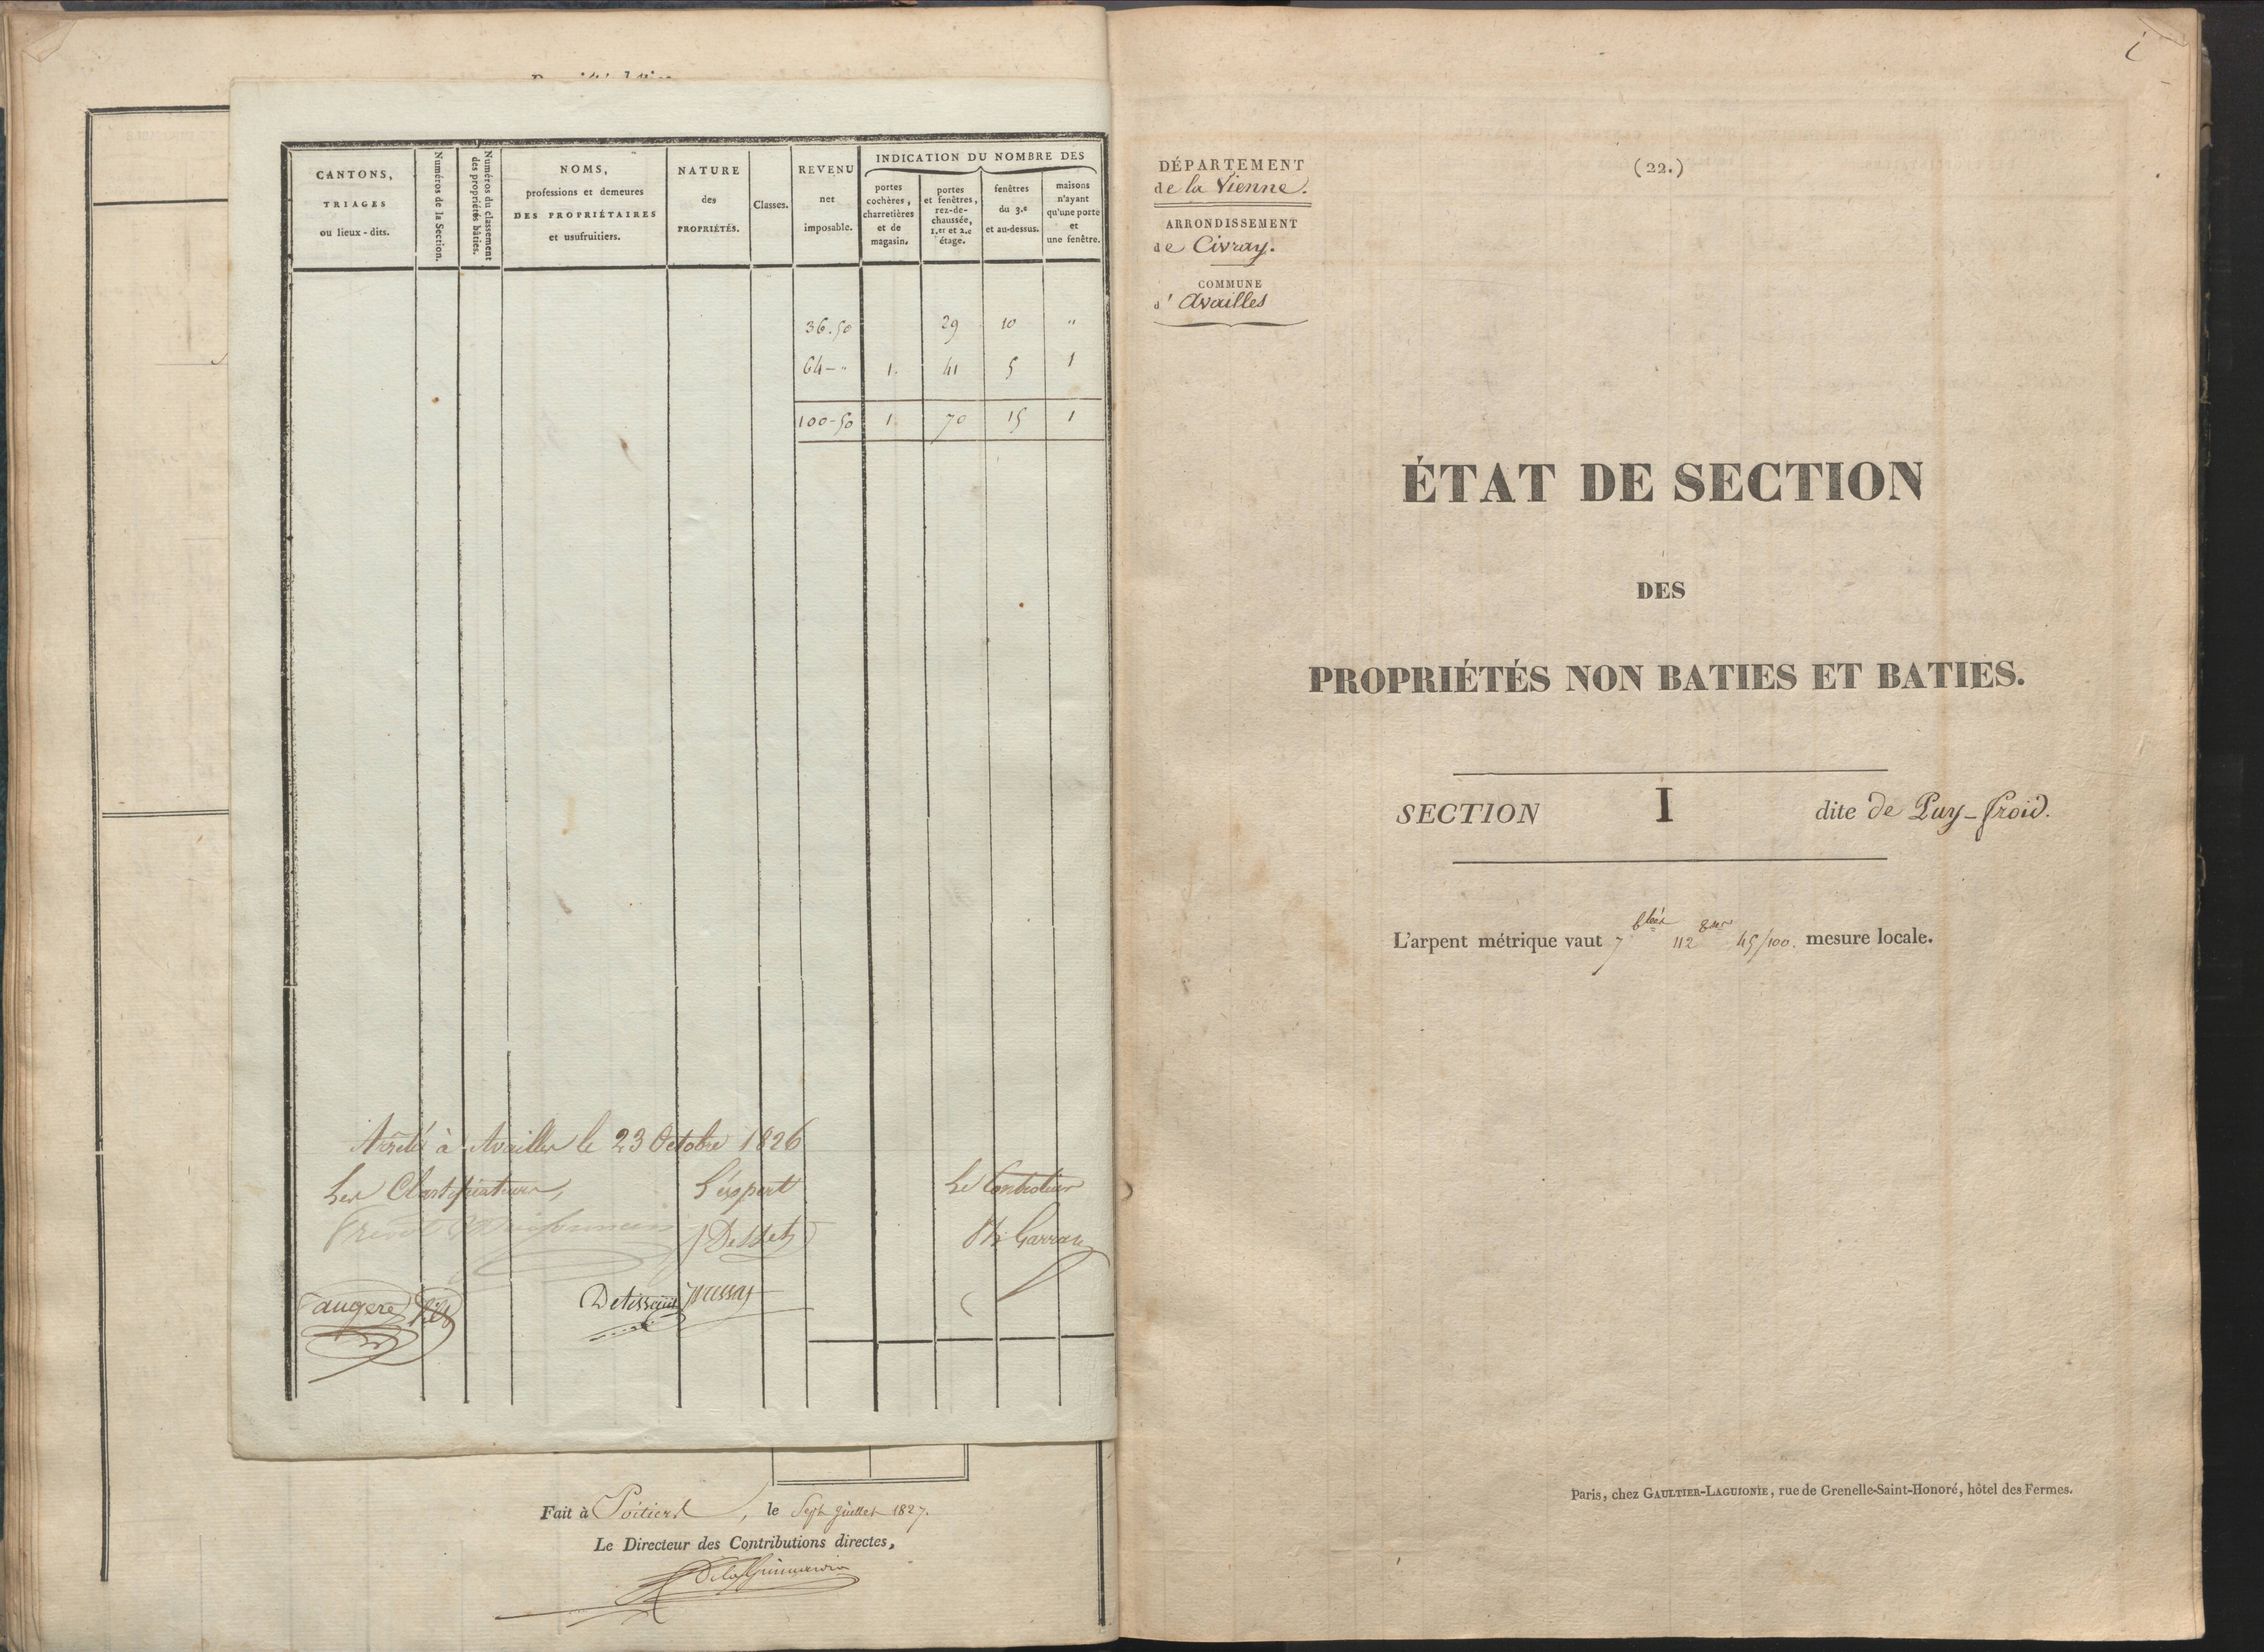 CANTONS,
TRIAGES
ou lieux-dits.
Numéros de la Section.
Numéros du classement
des propriétés bâties.
NOMS,
professions et demeures
DES PROPRIÉTAIRES
et usufruitiers.
NATURE
des
PROPRIÉTÉS.
Classes.
REVENU
net
imposable.
INDICATION DU NOMBRE DES
portes
cochères,
charretières
et de
magasin.
portes
et fenêtres,
rez-de-
chaussée,
1.er et 2.e
étage.
fenêtres
du 3.e
et au-dessus.
maisons
n'ayant
qu'une porte
et
une fenêtre.
36.50 29 10 "
64-" 1. 41 5 1
100-50 1. 70 15 1
Arrêté à Availles le 23 Octobre 1826
Les Classificateurs, L'expert Le Controleur
Desset
Faugere
Fait à Poitiers, le Sept Juillet 1827.
Le Directeur des Contributions directes,
i
(22.)
DÉPARTEMENT
de la Vienne.
ARRONDISSEMENT
de Civray.
COMMUNE
d'Availles
ÉTAT DE SECTION
DES
PROPRIÉTÉS NON BATIES ET BATIES.
SECTION I dite de Puy-froid.
L'arpent métrique vaut 7 112 45/100. mesure locale.
Paris, chez GAULTIER-LAGUIONIE, rue de Grenelle-Saint-Honoré, hôtel des Fermes.